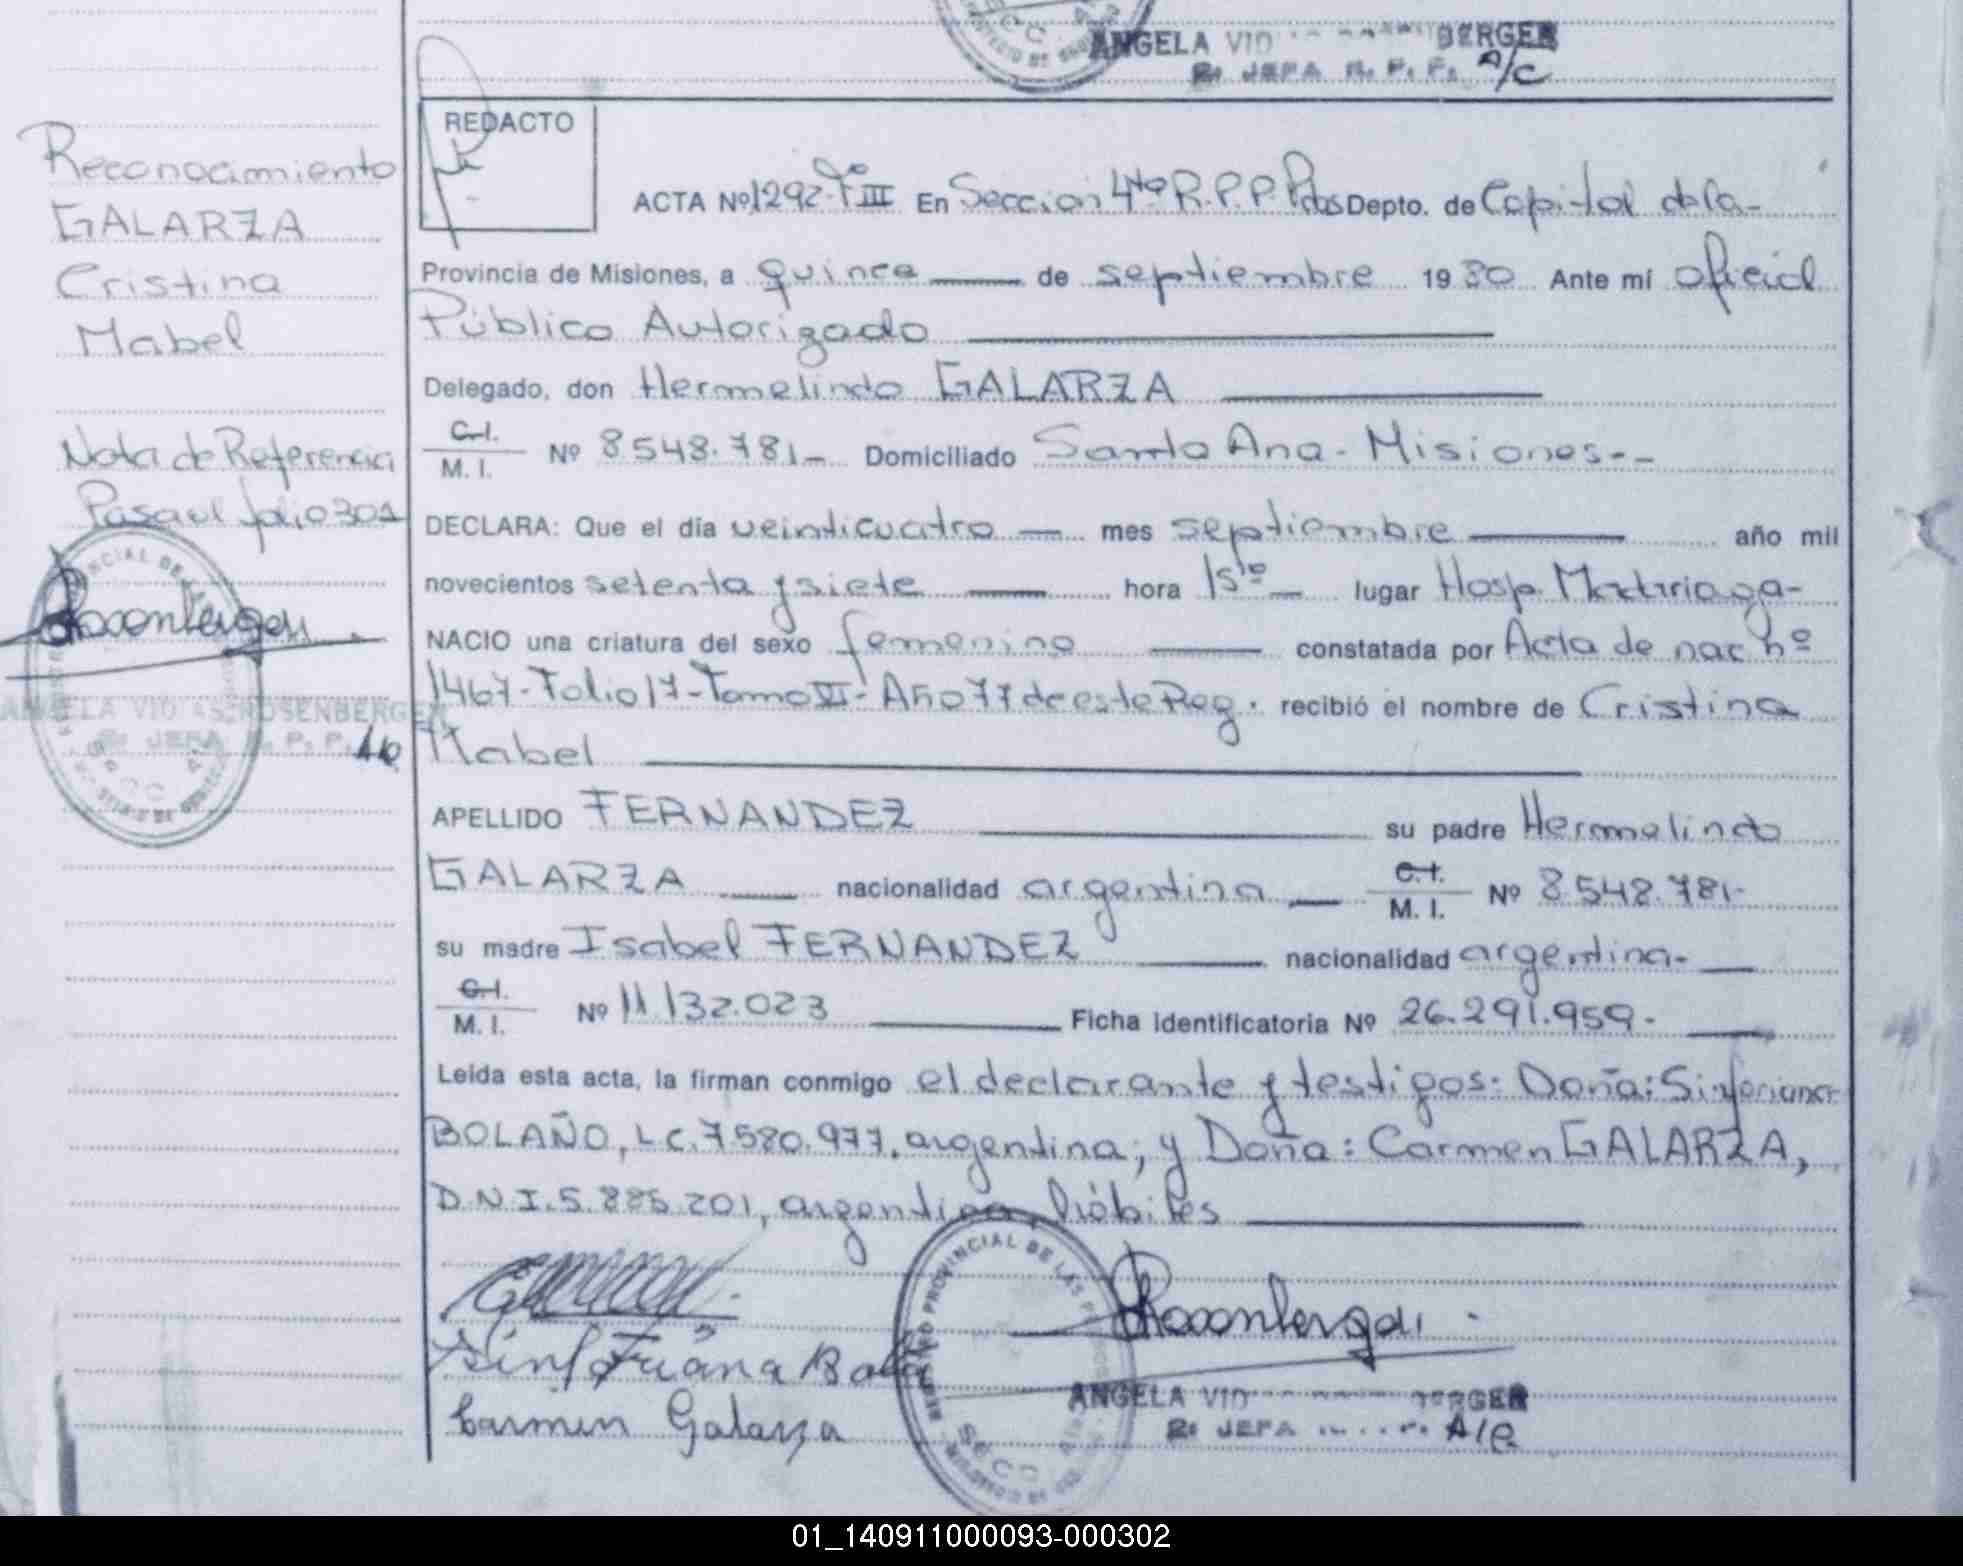 ANGELA VIO BERGER
2: JEFA R. P. P. A/C
REDACTO
Reconocimiento
GALARZA
Cristina
Mabel
Nota de Referencia
Pasa al folio 301
Rosenberger
ANGELA VIO S. ROSENBERGER
2: JEFA R. P. P.
SECC 4
ACTA Nº 1292-Tº III En Seccion 4ta R.P.P. Pdas Depto. de Capital de la-
Provincia de Misiones, a quince de septiembre 1980 Ante mí oficial
Público Autorizado
Delegado, don Hermelindo GALARZA
C.I.
M. I. Nº 8548.781- Domiciliado Santa Ana - Misiones--
DECLARA: Que el día veinticuatro mes septiembre año mil
novecientos setenta y siete hora 15to lugar Hosp. Madariaga-
NACIO una criatura del sexo femenino constatada por Acta de nac nº
1467-Folio 17-Tomo VI-Año 77 de este Reg. recibió el nombre de Cristina
Mabel
APELLIDO FERNANDEZ su padre Hermelindo
GALARZA nacionalidad argentina C.I.
M. I. Nº 8.548.781-
su madre Isabel FERNANDEZ nacionalidad argentina-
C.I.
M. I. Nº 11.132.023 Ficha identificatoria Nº 26.291.959-
Leída esta acta, la firman conmigo el declarante y testigos: Doña: Sinforiana
BOLAÑO, L.C. 7.580.977, argentina; y Doña: Carmen GALARZA,
D.N.I. 5.885.201, argentina, hábiles
REGISTRO PROVINCIAL DE LAS
SECC
Rosenberger
Sinforiana
Carmen Galarza
ANGELA VIO BERGER
2: JEFA A/C
01_140911000093-000302